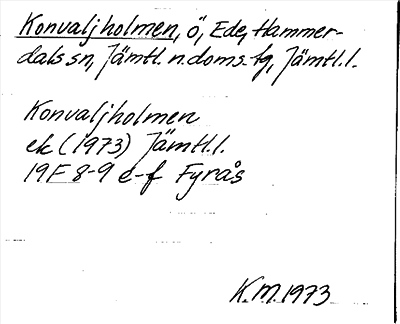 Konvaljholmen, ö, Ede, Hammer-
dals sn, Jämtl. n. doms.fg, Jämtl. l.
Konvaljholmen
ek (1973) Jämtl. l.
19F 8-9 e-f Fyrås
K.M. 1973